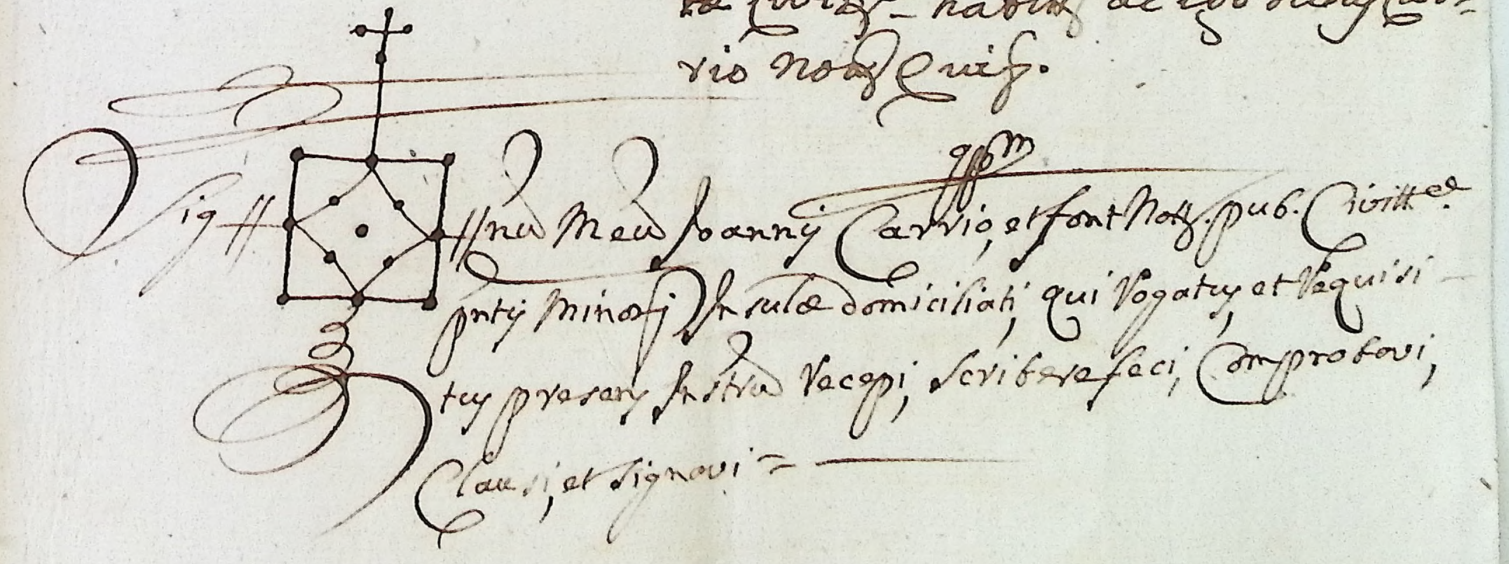 rio Nots Quis.
qppm
Sig // // nũ Meũ Joannis Carrio, et font Nots. pub. Civitte.
pntis Minoris Insulæ domiciliati, qui Rogatus, et Requisi-
tus presens Instrũ Recepi, Scribere feci, Comprobavi,
Clausi, et Signavi =